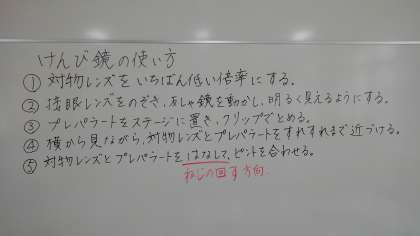 けんび鏡の使い方
① 対物レンズをいちばん低い倍率にする。
② 接眼レンズをのぞき、反しゃ鏡を動かし、明るく見えるようにする。
③ プレパラートをステージに置き、クリップでとめる。
④ 横から見ながら、対物レンズとプレパラートをすれすれまで近づける。
⑤ 対物レンズとプレパラートをはなして、ピントを合わせる。
ねじの回す方向